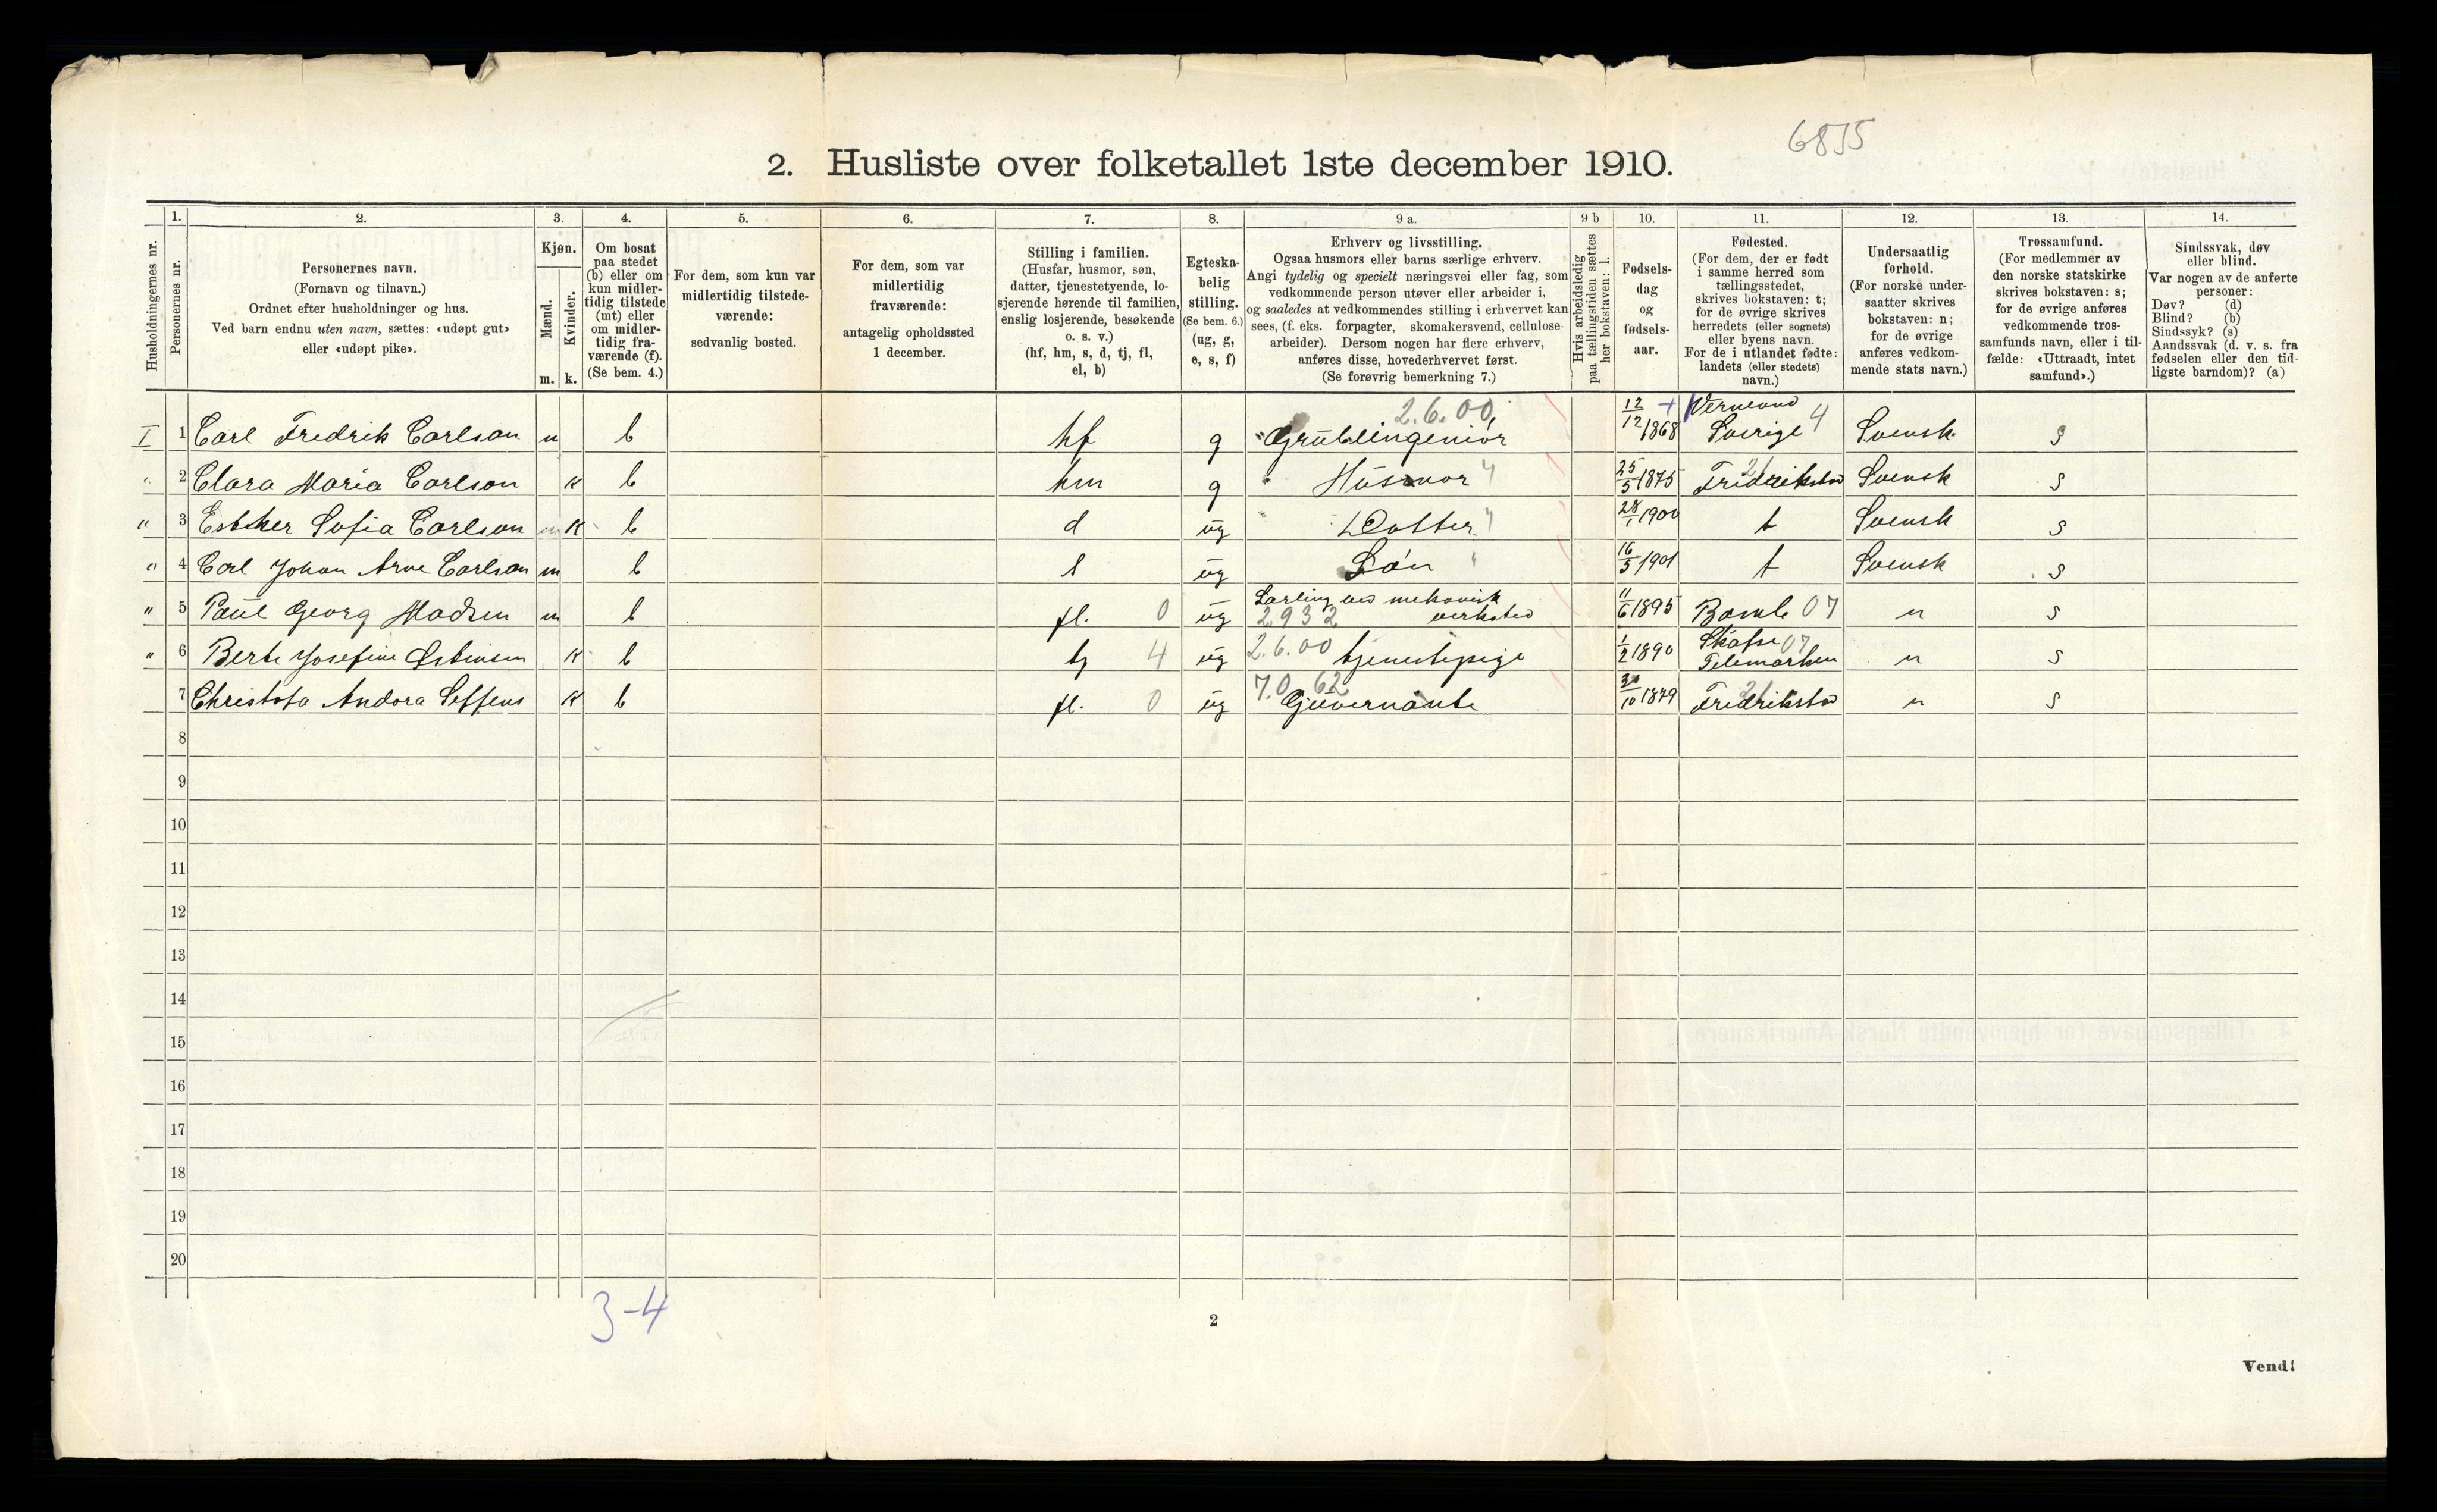 6855
2. Husliste over folketallet 1ste december 1910.
Husholdningernes nr.
1. Personernes nr.
2. Personernes navn.
(Fornavn og tilnavn.)
Ordnet efter husholdninger og hus.
Ved barn endnu uten navn, sættes: «udøpt gut»
eller «udøpt pike».
3. Kjøn.
Mænd. m.
Kvinder. k.
4. Om bosat
paa stedet
(b) eller om
kun midler-
tidig tilstede
(mt) eller
om midler-
tidig fra-
værende (f).
(Se bem. 4.)
5. For dem, som kun var
midlertidig tilstede-
værende:
sedvanlig bosted.
6. For dem, som var
midlertidig
fraværende:
antagelig opholdssted
1 december.
7. Stilling i familien.
(Husfar, husmor, søn,
datter, tjenestetyende, lo-
sjerende hørende til familien,
enslig losjerende, besøkende
o. s. v.)
(hf, hm, s, d, tj, fl,
el, b)
8. Egteska-
belig
stilling.
(Se bem. 6.)
(ug, g,
e, s, f)
9 a. Erhverv og livsstilling.
Ogsaa husmors eller barns særlige erhverv.
Angi tydelig og specielt næringsvei eller fag, som
vedkommende person utøver eller arbeider i,
og saaledes at vedkommendes stilling i erhvervet kan
sees, (f. eks. forpagter, skomakersvend, cellulose-
arbeider). Dersom nogen har flere erhverv,
anføres disse, hovederhvervet først.
(Se forøvrig bemerkning 7.)
9 b Hvis arbeidsledig
paa tællingstiden sættes
her bokstaven: l.
10. Fødsels-
dag
og
fødsels-
aar.
11. Fødested.
(For dem, der er født
i samme herred som
tællingsstedet,
skrives bokstaven: t;
for de øvrige skrives
herredets (eller sognets)
eller byens navn.
For de i utlandet fødte:
landets (eller stedets)
navn.)
12. Undersaatlig
forhold.
(For norske under-
saatter skrives
bokstaven: n;
for de øvrige
anføres vedkom-
mende stats navn.)
13. Trossamfund.
(For medlemmer av
den norske statskirke
skrives bokstaven: s;
for de øvrige anføres
vedkommende tros-
samfunds navn, eller i til-
fælde: «Uttraadt, intet
samfund».)
14. Sindssvak, døv
eller blind.
Var nogen av de anførte
personer:
Døv? (d)
Blind? (b)
Sindssyk? (s)
Aandssvak (d. v. s. fra
fødselen eller den tid-
ligste barndom)? (a)
I 1 Carl Fredrik Carlson m b hf g 2.6.00 Grubeingeniør 12/12 1868 Vermland Sverige 4 Svensk s
" 2 Clara Maria Carlson k b hm g Husmor " 25/5 1875 Fredrikstad 21 Svensk s
" 3 Esther Sofia Carlson k b d ug Datter " 28/1 1900 t Svensk s
" 4 Carl Johan Arne Carlson m b s ug Søn " 16/5 1901 t Svensk s
" 5 Paul Georg Madsen m b fl. 0 ug Lærling ved mekanisk verksted 2932 11/6 1895 Bamle 07 n s
" 6 Berte Josefine Østensen k b tj 4 ug 2.6.00 tjenestepige 1/2 1890 Skafse 07 Telemarken n s
7 Christofa Andora Seffens k b fl. 0 ug 7.0 62 Guvernante 30/10 1879 Fredrikstad 21 n s
8
9
10
11
12
13
14
15
16
17
18
19
20
3-4
2
Vend!